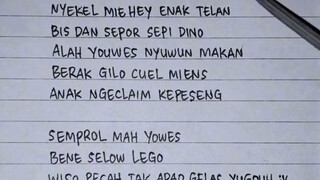 NYEKEL MIE HEY ENAK TELAN
BIS DAN SEPOR SEPI DINO
ALAH YOUWES NYUWUN MAKAN
BERAK GILO CUEL MIENS
ANAK NGECLAIM KEPESENG
SEMPROL MAH YOWES
BENE SELOW LEGO
WISO PECAH TAK ADAO GELAS